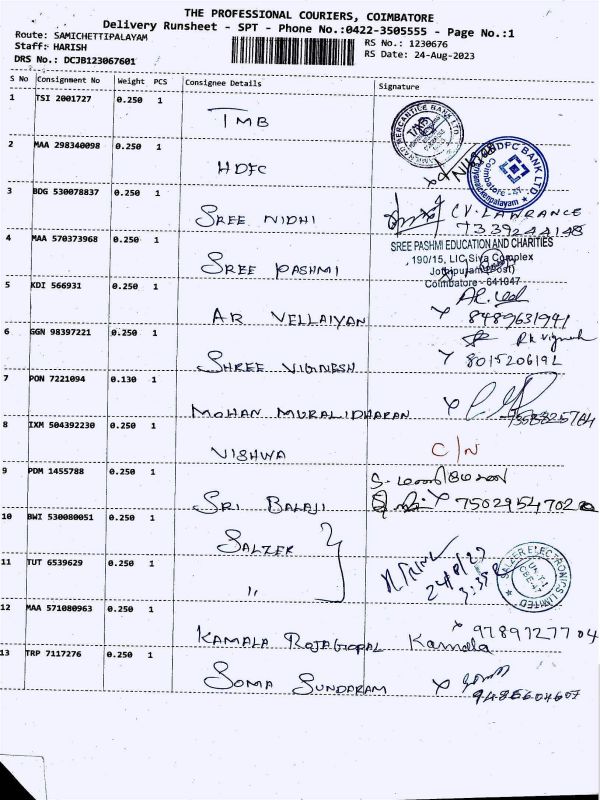 THE PROFESSIONAL COURIERS, COIMBATORE
Delivery Runsheet - SPT - Phone No.:0422-3505555 - Page No.:1
Route: SAMICHETTIPALAYAM
Staff: HARISH
DRS No.: DCJB123067601
RS No.: 1230676
RS Date: 24-Aug-2023
S No Consignment No Weight PCS Consignee Details Signature
1 TSI 2001727 0.250 1 TMB
2 MAA 298340098 0.250 1 HDFC
HDFC BANK LTD
3 BDG 530078837 0.250 1 SREE NIDHI CV. LAWRANCE
7339244148
4 MAA 570373968 0.250 1 SREE PASHMI
SREE PASHMI EDUCATION AND CHARITIES
190/15, LIC Siva Complex
Jothipuram (Post)
Coimbatore - 641047
5 KDI 566931 0.250 1 AR VELLAIYAN 8489631941
6 GGN 98397221 0.250 1 SHREE VIGINESH
8015206192
7 PON 7221094 0.130 1 MOHAN MURALIDHARAN
8 IXM 504392230 0.250 1 VISHWA C/N
9 PDM 1455788 0.250 1 SRI BALAJI 7502954702
10 BWI 530080051 0.250 1 SALZER
SALZER ELECTRONICS LIMITED
11 TUT 6539629 0.250 1 "
12 MAA 571080963 0.250 1 KAMALA ROJAGOPAL Kamala 9789727704
13 TRP 7117276 0.250 1 SOMA SUNDARAM
9486604607